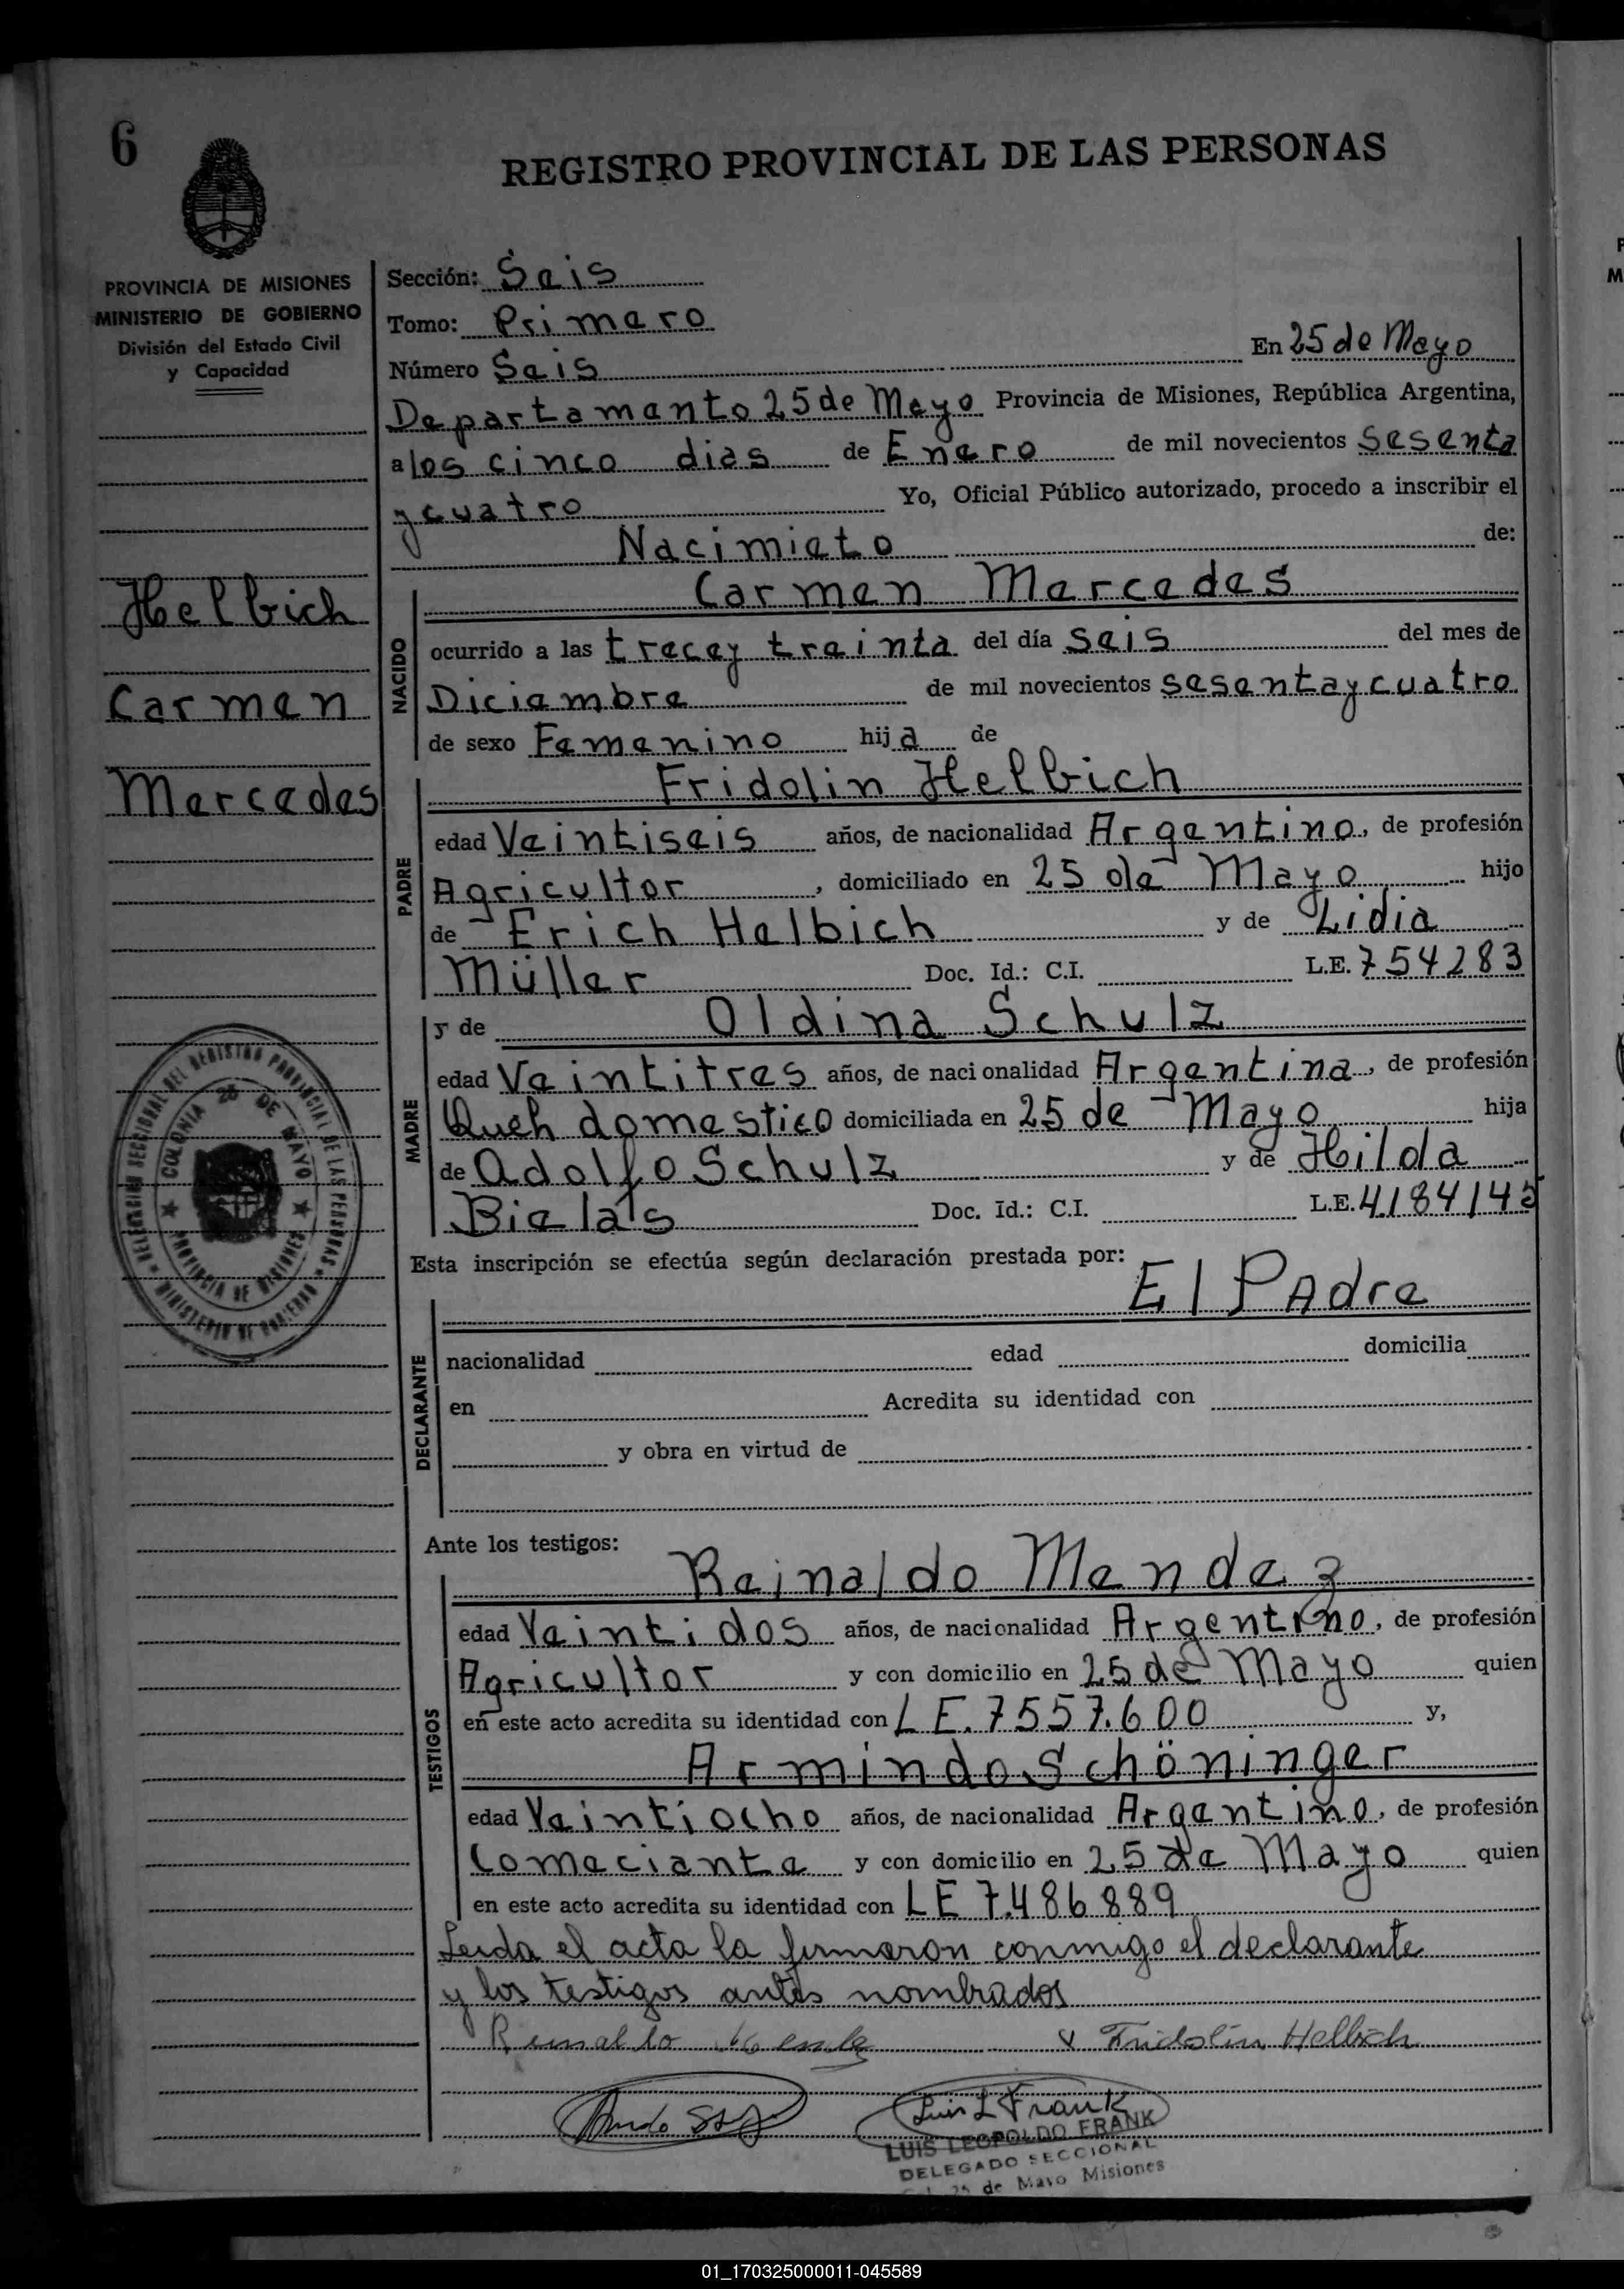 6
REGISTRO PROVINCIAL DE LAS PERSONAS
PROVINCIA DE MISIONES
MINISTERIO DE GOBIERNO
División del Estado Civil
y Capacidad
Helbich
Carmen
Mercedes
DELEGACION SECCIONAL DEL REGISTRO PROVINCIAL DE LAS PERSONAS
MINISTERIO DE GOBIERNO
COLONIA 25 DE MAYO
PROVINCIA DE MISIONES
Sección: Seis
Tomo: Primero
Número Seis En 25 de Mayo
Departamento 25 de Mayo Provincia de Misiones, República Argentina,
a los cinco dias de Enero de mil novecientos sesenta
y cuatro Yo, Oficial Público autorizado, procedo a inscribir el
Nacimieto de:
NACIDO
Carmen Mercedes
ocurrido a las trece y treinta del día seis del mes de
Diciembre de mil novecientos sesenta y cuatro
de sexo Femenino hija de
PADRE
Fridolin Helbich
edad Veintiseis años, de nacionalidad Argentino, de profesión
Agricultor, domiciliado en 25 de Mayo hijo
de Erich Helbich y de Lidia
Müller Doc. Id.: C.I. L.E. 754283
MADRE
y de Oldina Schulz
edad Veintitres años, de nacionalidad Argentina, de profesión
Queh domestico domiciliada en 25 de Mayo hija
de Adolfo Schulz y de Hilda
Bielas Doc. Id.: C.I. L.E. 4.184142
Esta inscripción se efectúa según declaración prestada por:
DECLARANTE
El Padre
nacionalidad edad domicilia
en Acredita su identidad con
y obra en virtud de
Ante los testigos:
TESTIGOS
Reinaldo Mendez
edad Veintidos años, de nacionalidad Argentino, de profesión
Agricultor y con domicilio en 25 de Mayo quien
en este acto acredita su identidad con LE. 7557.600 y,
Armindo Schöninger
edad Veintiocho años, de nacionalidad Argentino, de profesión
Comeciante y con domicilio en 25 de Mayo quien
en este acto acredita su identidad con LE 7.486 889
Leida el acta la firmaron conmigo el declarante
y los testigos antes nombrados
x Fridolin Helbich
Luis L Frank
LUIS LEOPOLDO FRANK
DELEGADO SECCIONAL
25 de Mayo Misiones
01_170325000011-045589